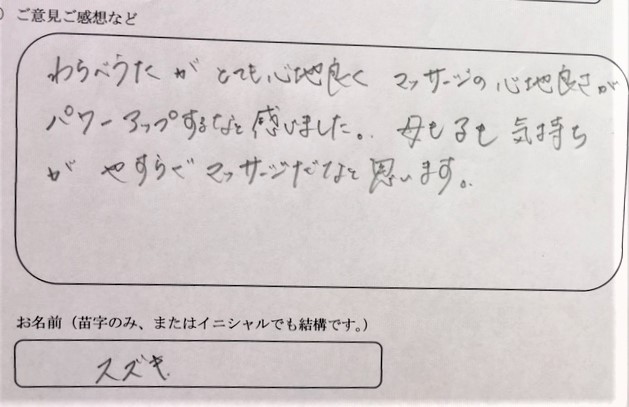 ご意見ご感想など
わらべうたが とても心地良く マッサージの心地良さが
パワーアップするなと感じました。母も子も気持ち
が やすらぐマッサージだなと思います。
お名前（苗字のみ、またはイニシャルでも結構です。）
スズキ